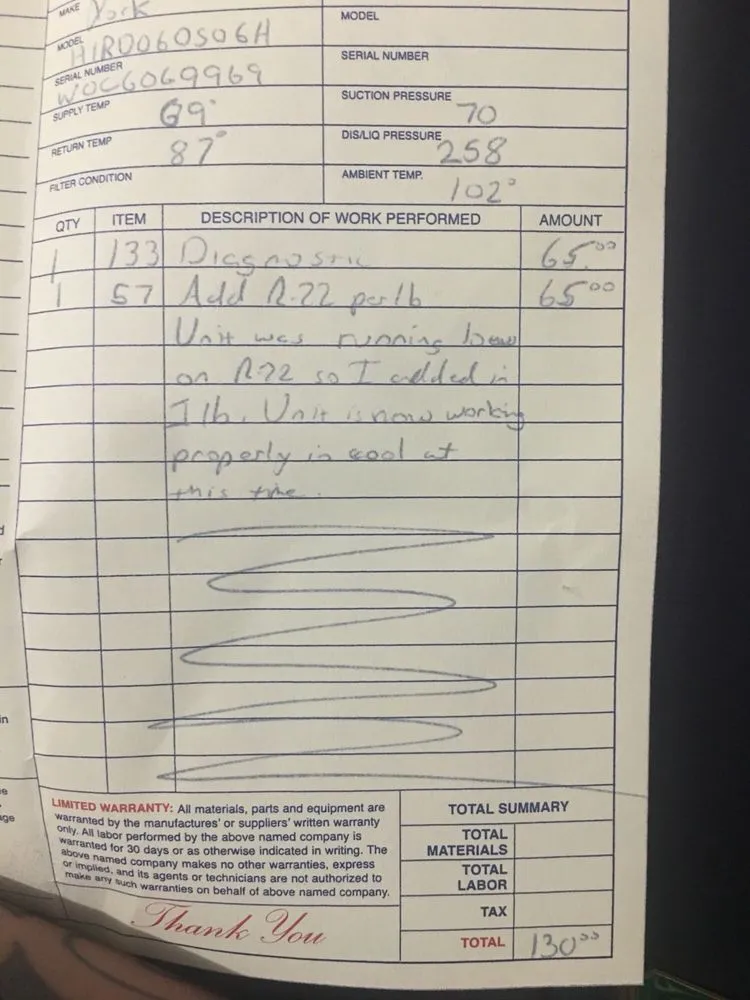 MAKE York
MODEL
MODEL H1RD060S06H
SERIAL NUMBER
SERIAL NUMBER W0C6069969
SUCTION PRESSURE 70
SUPPLY TEMP 69°
DIS/LIQ PRESSURE 258
RETURN TEMP 87°
AMBIENT TEMP. 102°
FILTER CONDITION
QTY ITEM DESCRIPTION OF WORK PERFORMED AMOUNT
1 133 Diagnostic 65.00
1 57 Add R-22 per lb 65 00
Unit was running low
on R-22 so I added in
1 lb. Unit is now working
properly in cool at
this time.
in
ge
LIMITED WARRANTY: All materials, parts and equipment are
warranted by the manufactures' or suppliers' written warranty
only. All labor performed by the above named company is
warranted for 30 days or as otherwise indicated in writing. The
above named company makes no other warranties, express
or implied, and its agents or technicians are not authorized to
make any such warranties on behalf of above named company.
Thank You
TOTAL SUMMARY
TOTAL
MATERIALS
TOTAL
LABOR
TAX
TOTAL 130 00